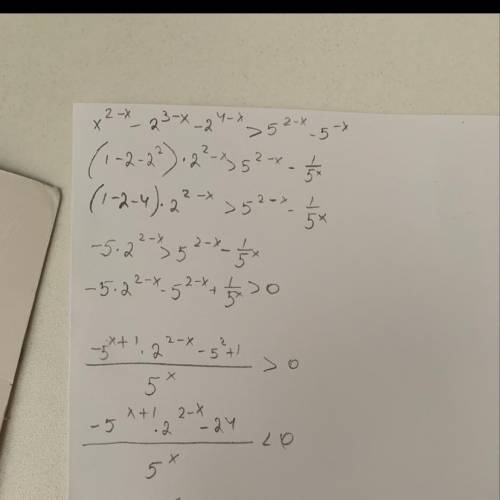 x^{2-x} - 2^{3-x} - 2^{4-x} > 5^{2-x} - 5^{-x}
(1-2-2^2) · 2^{2-x} > 5^{2-x} - \frac{1}{5^x}
(1-2-4) · 2^{2-x} > 5^{2-x} - \frac{1}{5^x}
-5 · 2^{2-x} > 5^{2-x} - \frac{1}{5^x}
-5 · 2^{2-x} - 5^{2-x} + \frac{1}{5^x} > 0
\frac{-5^{x+1} · 2^{2-x} - 5^2 + 1}{5^x} > 0
\frac{-5^{x+1} · 2^{2-x} - 24}{5^x} < 0